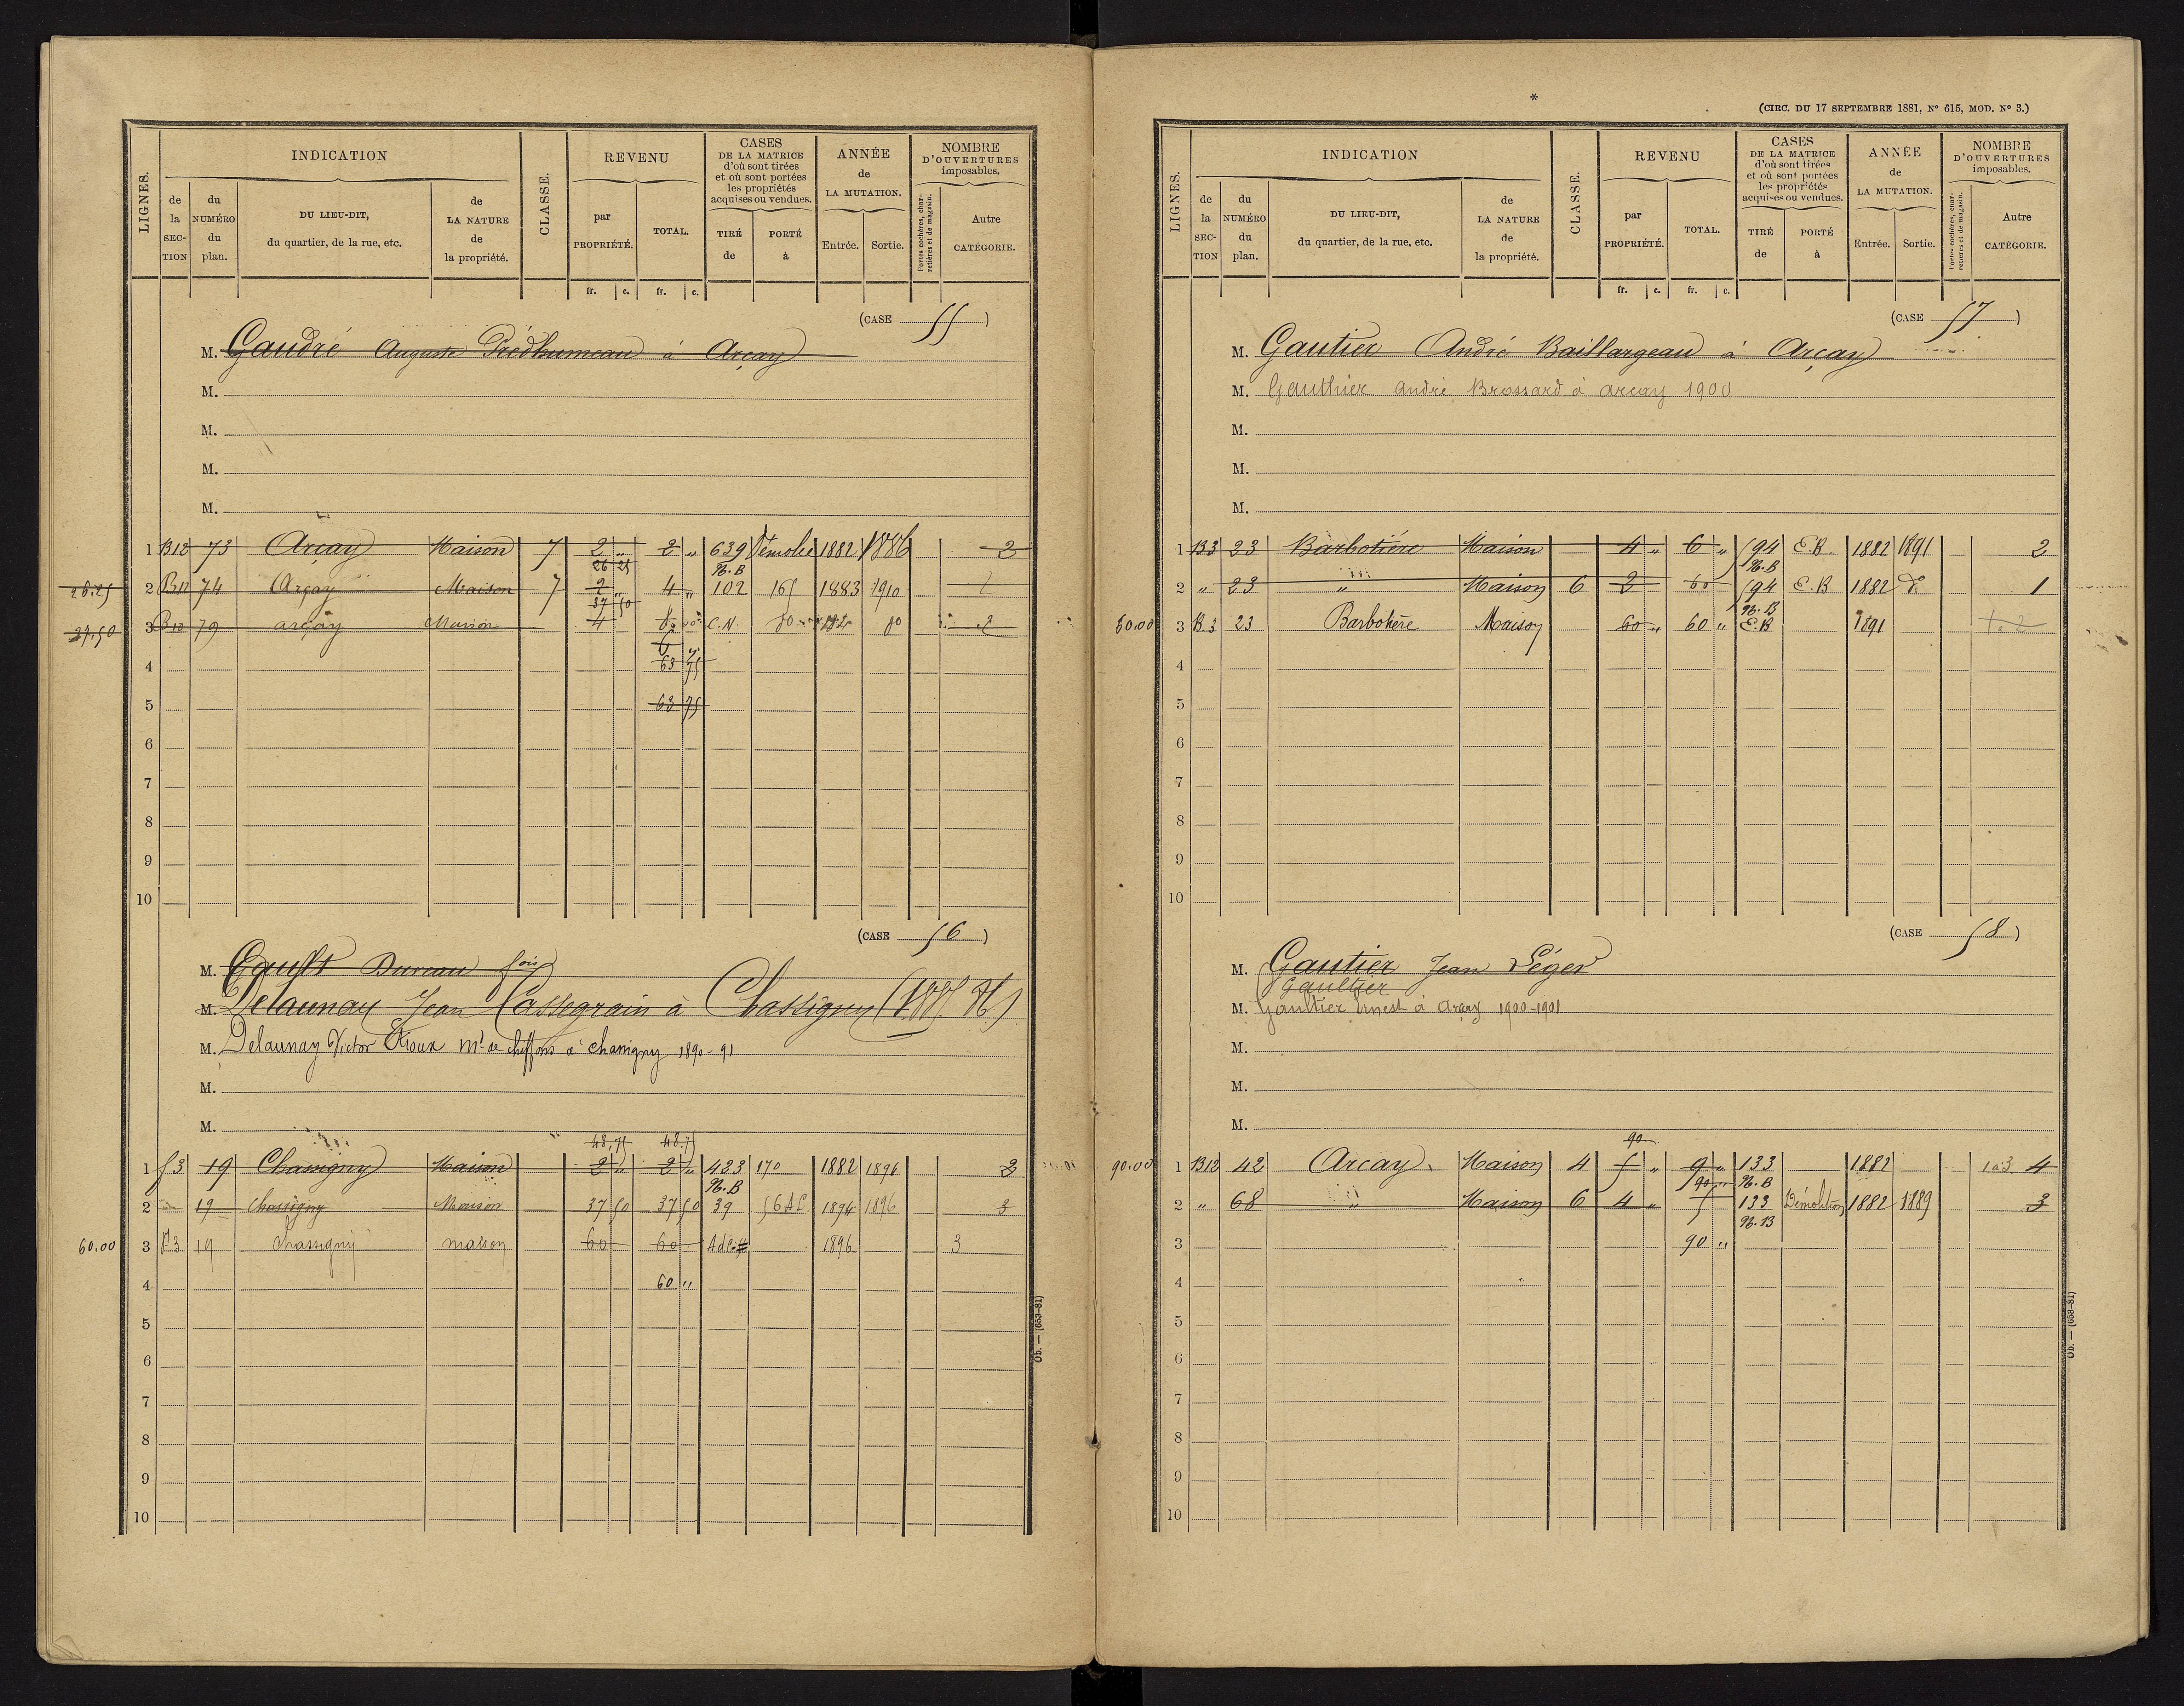 LIGNES.
INDICATION
de la SECTION
du NUMÉRO du plan.
DU LIEU-DIT, du quartier, de la rue, etc.
de LA NATURE de la propriété.
CLASSE.
REVENU
par PROPRIÉTÉ.
TOTAL.
CASES DE LA MATRICE d'où sont tirées et où sont portées les propriétés acquises ou vendues.
TIRÉ de
PORTÉ à
ANNÉE de LA MUTATION.
Entrée.
Sortie.
NOMBRE D'OUVERTURES imposables.
Portes cochères, charretières et de magasin.
Autre CATÉGORIE.
fr. c. fr. c.
(CASE 55)
M. Gaudré Auguste Prédhumeau à Arçay
M.
M.
M.
M.
1 B12 73 Arçay Maison 7 2 " 2 " 639 Démolie 1882 1886 2
26 25 N.B
26.25 2 B12 74 Arçay Maison 7 2 " 4 " 102 165 1883 1910 2
37 50
37.50 3 B12 79 arçay Maison 4 C.N. 2
4 63 75
5 63 75
6
7
8
9
10
(CASE 56)
M. Gault Dureau fois
M. Delaunay Jean Cassegrain à Chassigny
M. Delaunay Victor Rioux Md de chiffons à chassigny 1890-91
M.
M.
48,75 48,75
1 f3 19 Chassigny Maison 2 " 2 " 423 170 1882 1894 3
N.B
2 19 Chassigny Maison 37 50 37 50 39 1894 1896 3
60.00 3 19 Chassigny maison 60 60 1896 3
4 60 "
5
6
7
8
9
10
Ob. — (653-81)
*
(CIRC. DU 17 SEPTEMBRE 1881, No 615, MOD. No 3.)
LIGNES.
INDICATION
de la SECTION
du NUMÉRO du plan.
DU LIEU-DIT, du quartier, de la rue, etc.
de LA NATURE de la propriété.
CLASSE.
REVENU
par PROPRIÉTÉ.
TOTAL.
CASES DE LA MATRICE d'où sont tirées et où sont portées les propriétés acquises ou vendues.
TIRÉ de
PORTÉ à
ANNÉE de LA MUTATION.
Entrée.
Sortie.
NOMBRE D'OUVERTURES imposables.
Portes cochères, charretières et de magasin.
Autre CATÉGORIE.
fr. c. fr. c.
(CASE 57)
M. Gautier André Baillargeau à Arçay
M. Gauthier André Brossard à arcay 1900
M.
M.
M.
1 B3 23 Barbotière Maison 4 " 6 " 594 E.B. 1882 1891 2
N.B
2 " 23 " Maison 6 2 60 594 E.B 1882 1
N.B
60.00 3 B3 23 Barbotière Maison 60 " 60 " E.B 1891 1 a 2
4
5
6
7
8
9
10
(CASE 58)
M. Gautier Jean Léger
Gaultier
M. Gaultier Ernest à Arçay 1900-1901
M.
M.
M.
90
90.00 1 B12 42 Arcay Maison 4 5 " 9 " 133 1882 1 a 3 4
90 " N.B
2 " 68 " Maison 6 4 " 5 133 Démolition 1882 1889 3
N.B
3 90 "
4
5
6
7
8
9
10
Ob. — (653-81)